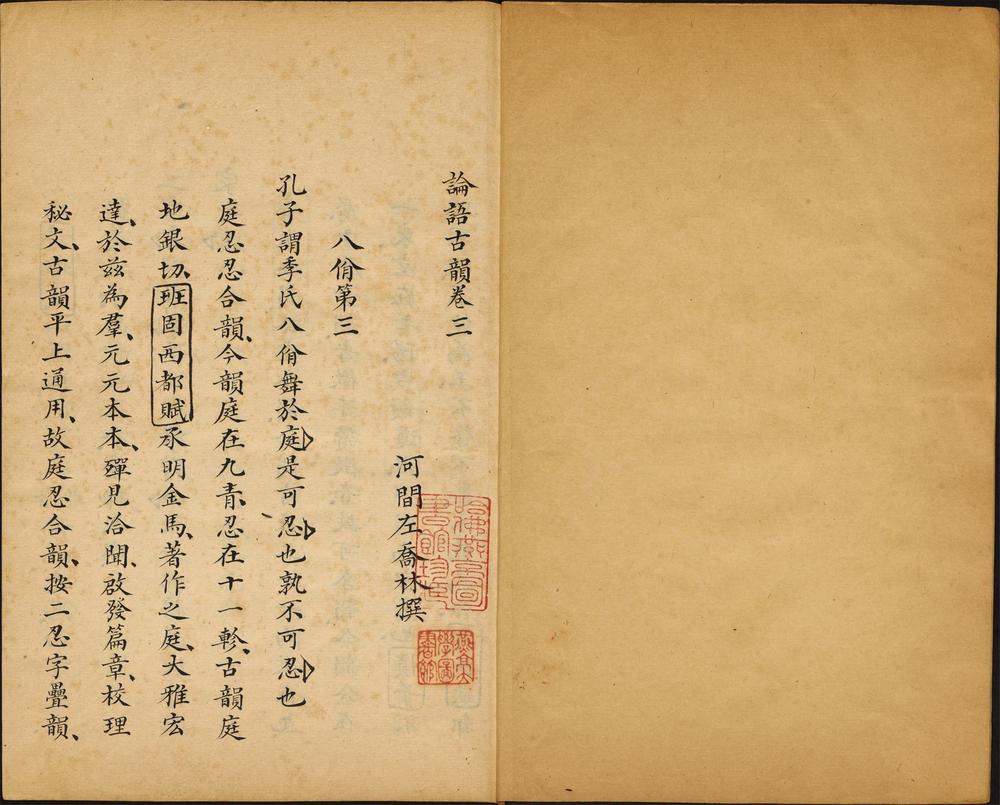 論語古韻卷三
河間左喬林撰
八佾第三
孔子謂季氏八佾舞於庭是可忍也孰不可忍也
庭忍忍合韻、今韻庭在九青、忍在十一軫、古韻庭
地銀切、班固西都賦承明金馬、著作之庭、大雅宏
達、於茲為羣、元元本本、殫見洽聞、啟發篇章、校理
秘文、古韻平上通用、故庭忍合韻、按二忍字疊韻、
哈佛燕京圖書館珍藏
燕京大學圖書館